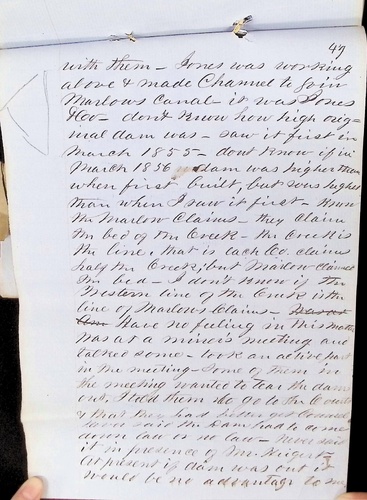 49
with them - Jones was working
above & made Channel to join
Marlows Canal - it was Jones
&Co - dont know how high orig-
inal dam was - saw it first in
March 1855 - dont know if in
March 1856 dam was higher than
when first built, but was higher
than when I saw it first - Know
the Marlow Claims - they claim
the bed of the Creek - the Creek is
the line, that is each Co. claim
half the Creek; but Marlow claimed
the bed - I don't know if the
Western line of the Creek is the
line of Marlows Claims -
Have no feeling in this matter
was at a miner's meeting and
talked some - took an active part
in the meeting - Some of them in
the meeting wanted to tear the dam
out, I told them to go to the Courts
& that they had better get Counsel
said the Dam had to come
down law or no law - Never said
it in presence of Mr.
At present if dam was out it
would be no advantage to me